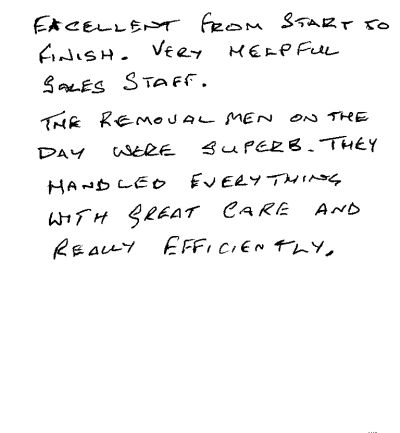 EXCELLENT FROM START TO
FINISH. VERY HELPFUL
SALES STAFF.
THE REMOVAL MEN ON THE
DAY WERE SUPERB. THEY
HANDLED EVERYTHING
WITH GREAT CARE AND
REALLY EFFICIENTLY.